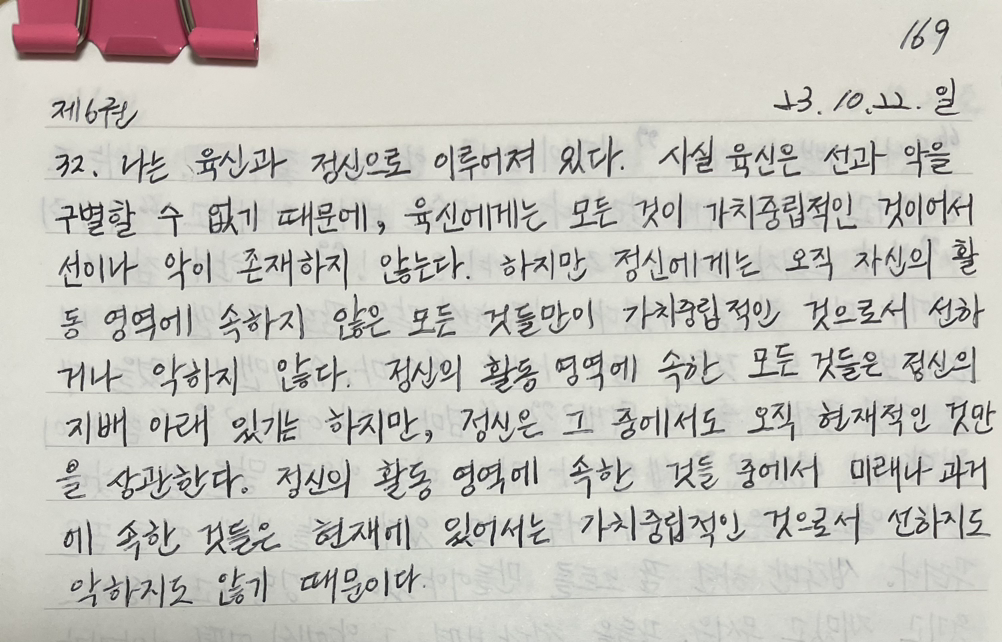 169
제6권
23.10.22. 일
32. 나는 육신과 정신으로 이루어져 있다. 사실 육신은 선과 악을
구별할 수 없기 때문에, 육신에게는 모든 것이 가치중립적인 것이어서
선이나 악이 존재하지 않는다. 하지만 정신에게는 오직 자신의 활
동 영역에 속하지 않은 모든 것들만이 가치중립적인 것으로서 선하
거나 악하지 않다. 정신의 활동 영역에 속한 모든 것들은 정신의
지배 아래 있기는 하지만, 정신은 그 중에서도 오직 현재적인 것만
을 상관한다. 정신의 활동 영역에 속한 것들 중에서 미래나 과거
에 속한 것들은 현재에 있어서는 가치중립적인 것으로서 선하지도
악하지도 않기 때문이다.